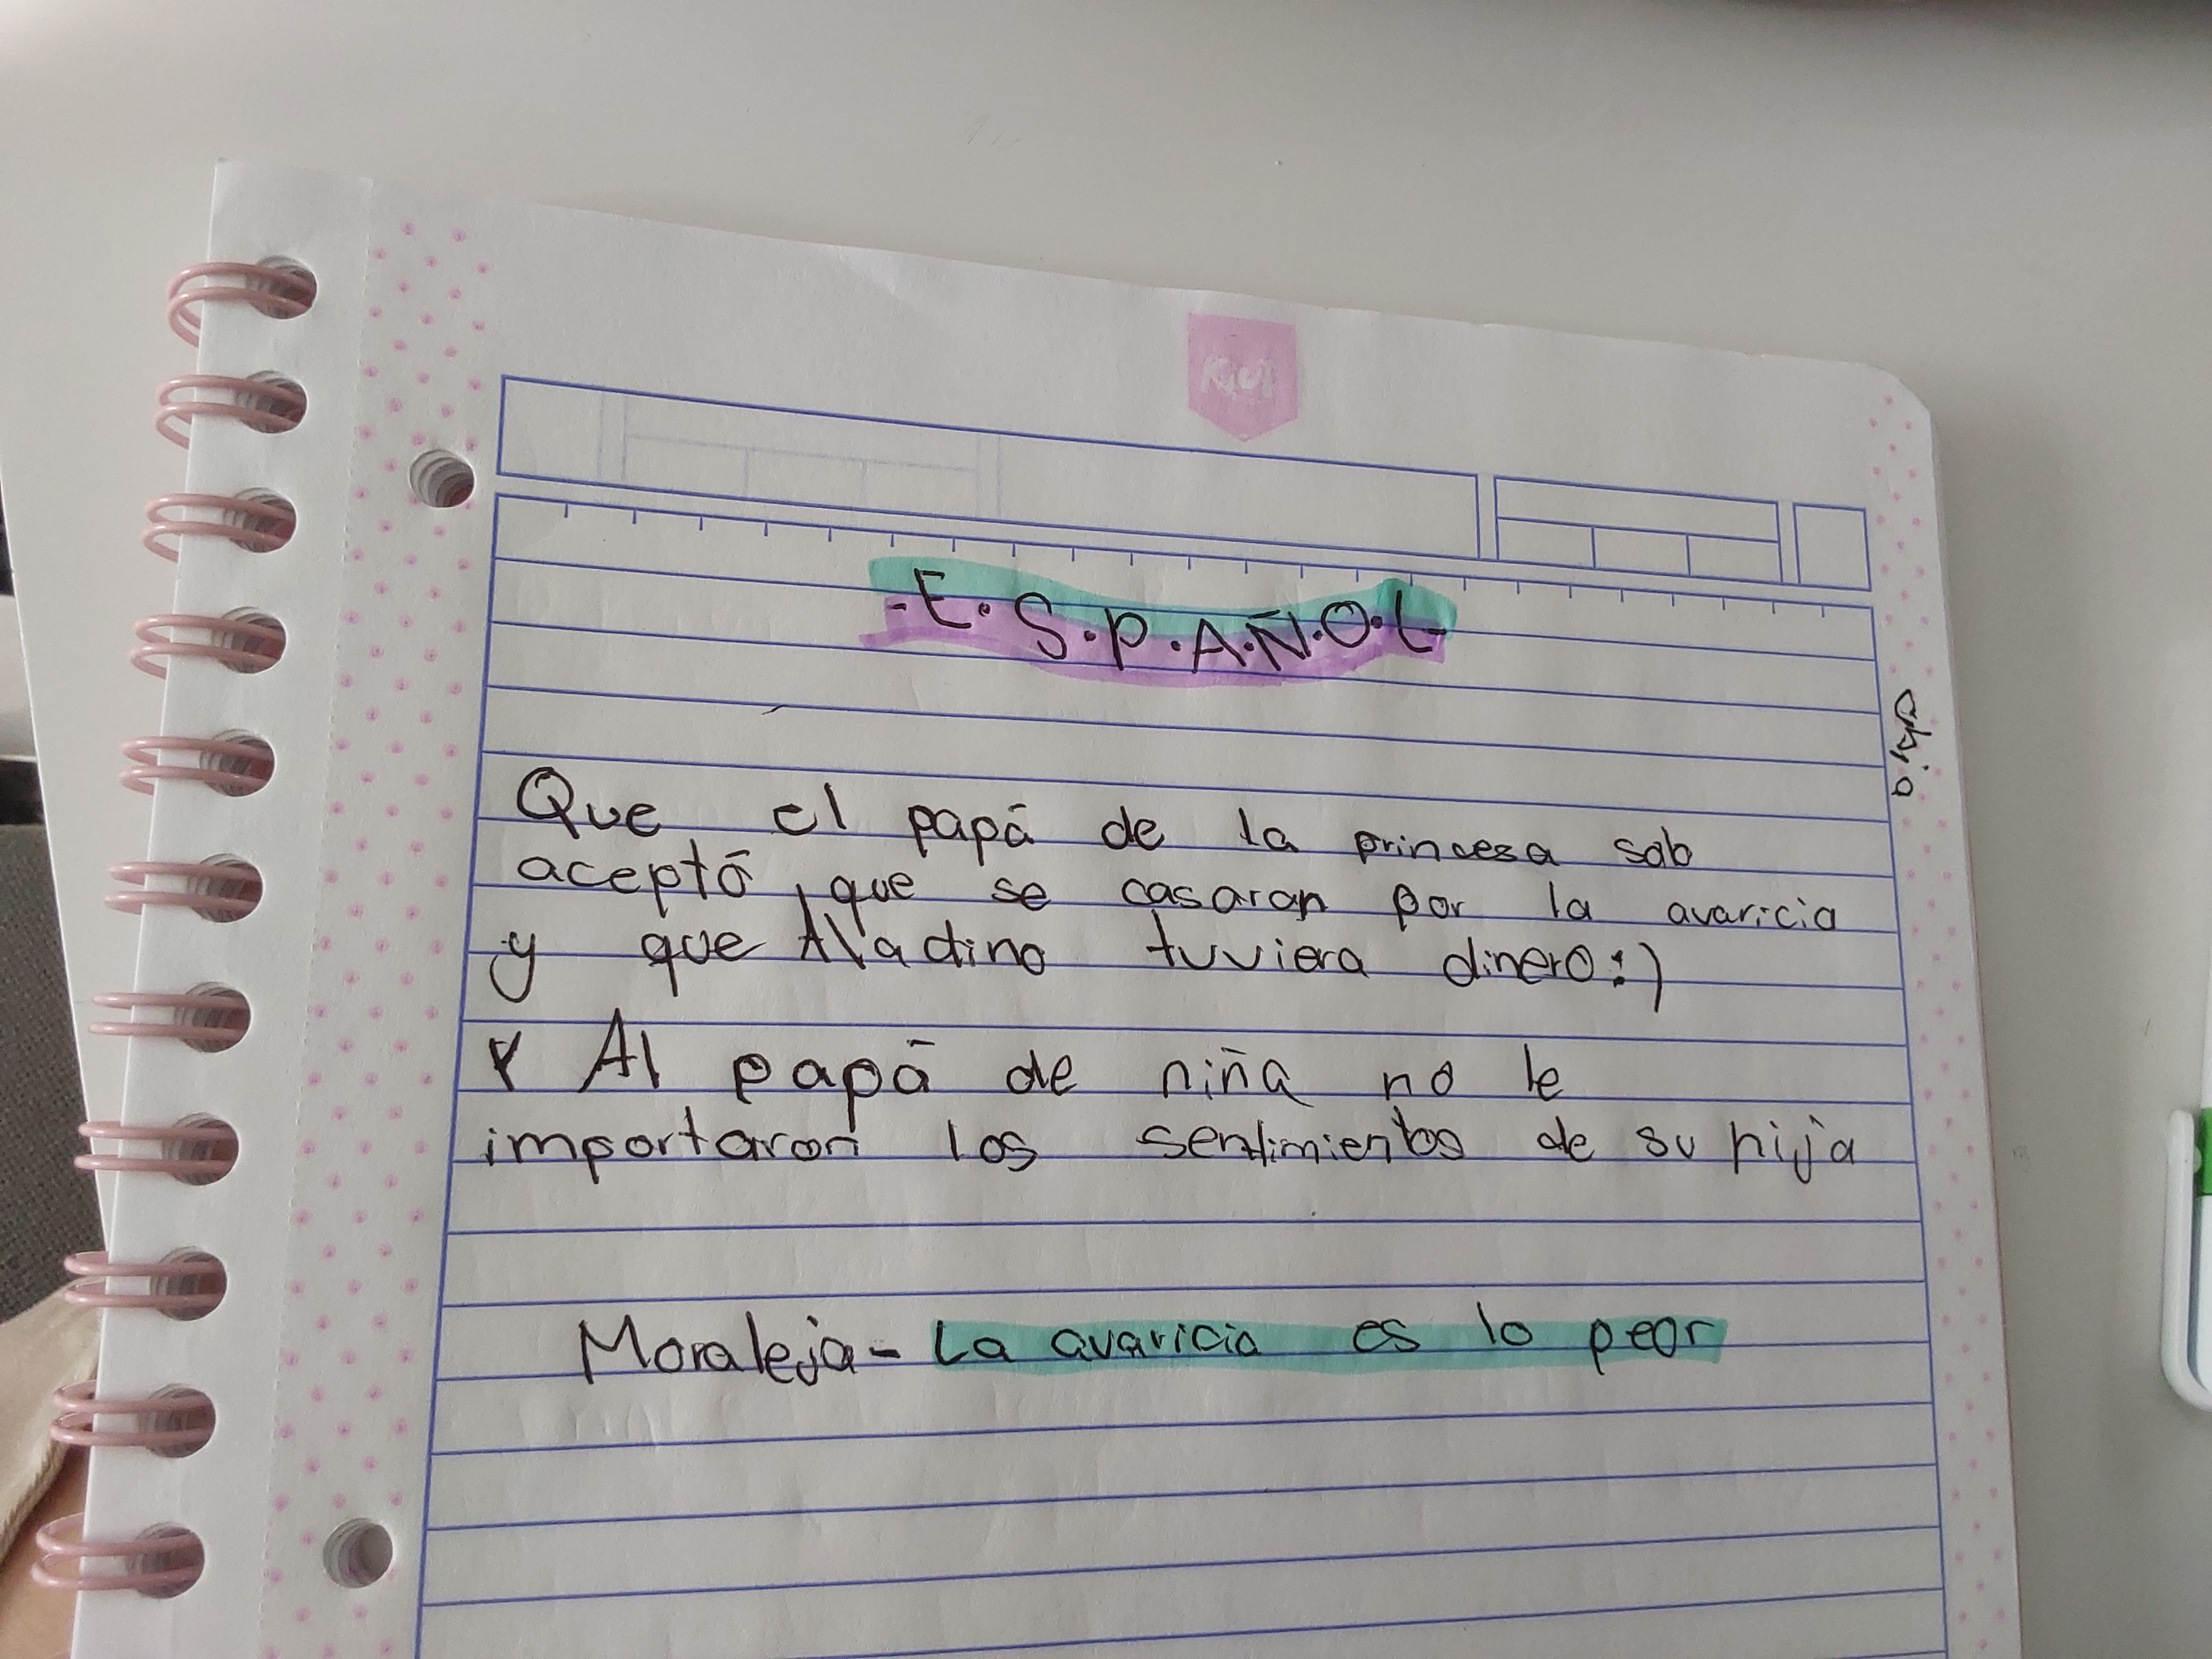 Kiut
-E.S.P.A.Ñ.O.L-
Que el papá de la princesa sab
aceptó que se casaran por la avaricia
y que Aladino tuviera dinero:)
Y Al papá de niña no le
importaron los sentimientos de su hija
Moraleja- La avaricia es lo peor